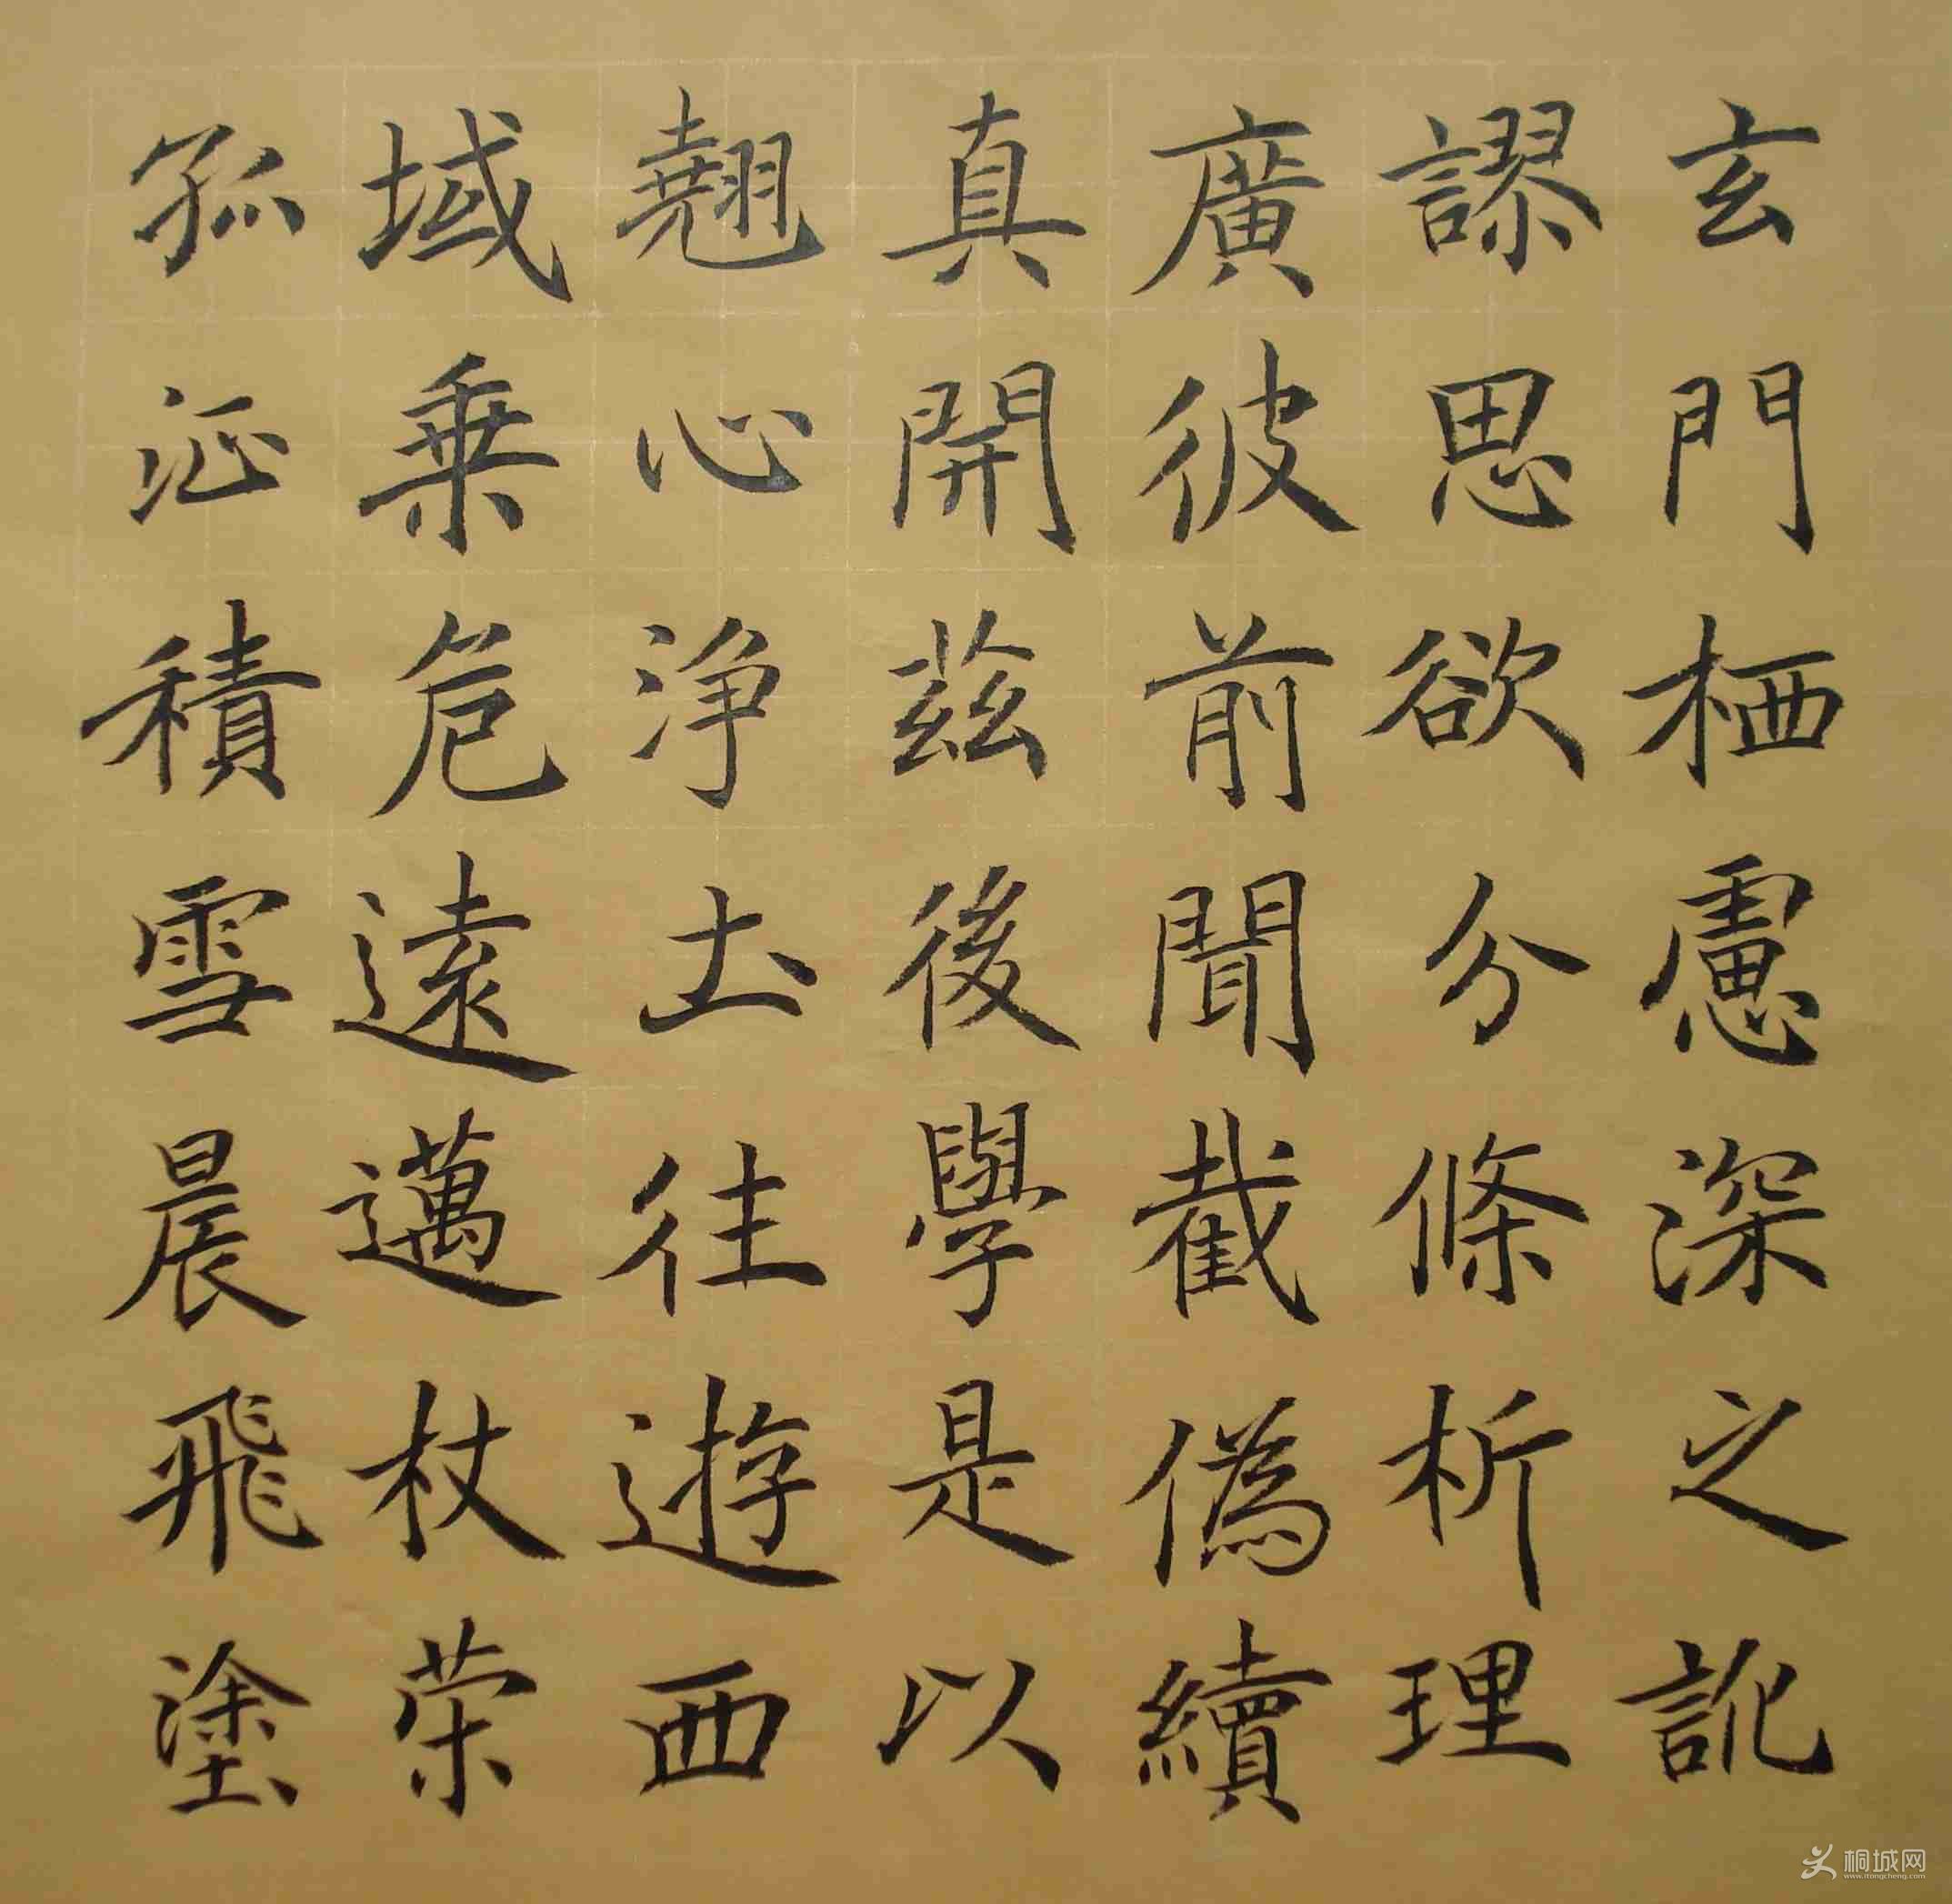 玄門栖慮深之訛
謬思欲分條析理
廣彼前聞截偽續
真開茲後學是以
翹心淨土往遊西
域乗危遠邁杖荣
孤征積雪晨飛塗
桐城网
www.itongcheng.com